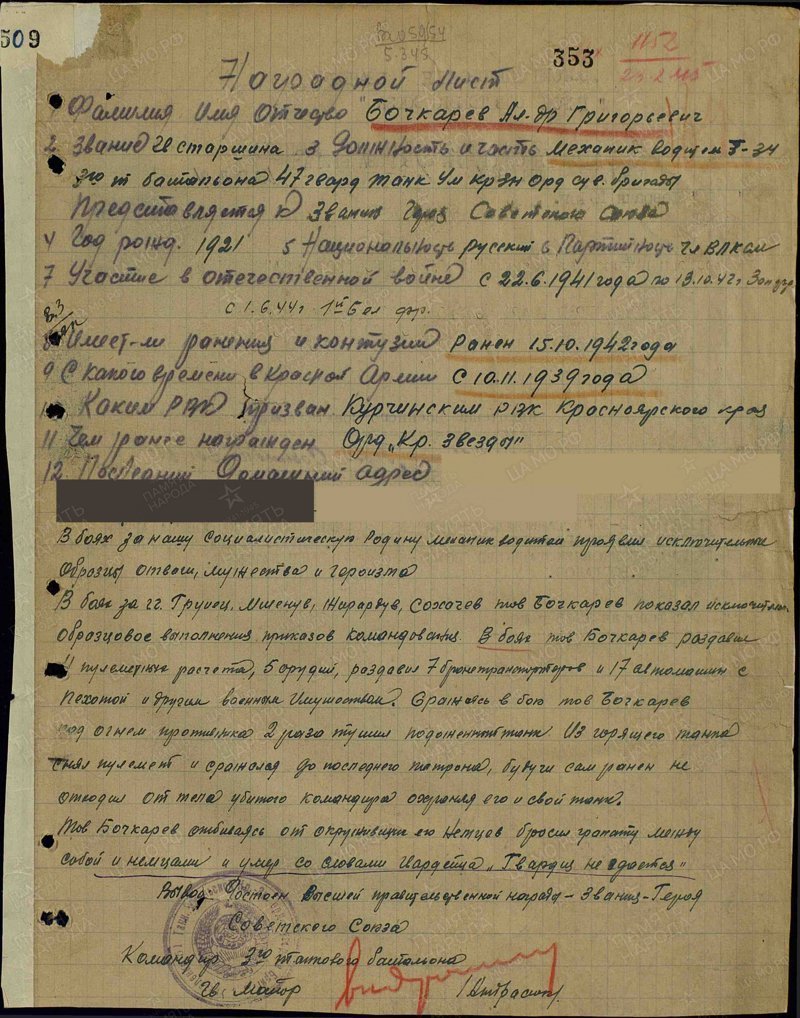 509
353
1152
Наградной лист
1 Фамилия Имя Отчество Бочкарев Ал-др Григорьевич
2. Звание Гв старшина 3 Должность и часть Механик водитель Т-34
3го т батальона 47 гвард танк Ум крзн орд сув. бригады
Представляется к званию Героя Советского Союза
4 Год рожд. 1921 5 Национальность русский 6 Партийность Чл ВЛКСМ
7 Участие в отечественной войне с 22.6.1941 года по 13.10.42г
с 1.6.44г 1й Бел фр.
8 Имеет-ли ранения и контузии Ранен 15.10.1942 года
9 С какого времени в Красной Армии С 10.11.1939 года
10 Каким РВК призван Курчинским рвк Красноярского края
11 Чем ранее награжден Орд „Кр. Звезды"
12. Последний Домашний адрес
В боях за нашу социалистическую Родину механик водитель проявил исключительные
образцы отваги, мужества и героизма
В боях за гг. Груец, Мшенув, Жирардув, Сохачев тов Бочкарев показал исключительно
образцовое выполнения приказов командования. В боях тов Бочкарев раздавил
4 пулеметных расчета, 5 орудий, раздавил 7 бронетранспортеров и 17 автомашин с
пехотой и другим военным имуществом. Сражаясь в бою тов Бочкарев
под огнем противника 2 раза тушил подоженный танк. Из горящего танка
снял пулемет и сражался до последнего патрона, будучи сам ранен не
отходил от тела убитого командира охраняя его и свой танк.
Тов Бочкарев отбиваясь от окруживших его немцев бросил гранату между
собой и немцами и умер со словами гвардейца „Гвардия не сдается"
Вывод Достоен высшей правительственной награды – звания – Героя
Советского Союза
Командир 3го танкового батальона
Гв. Майор